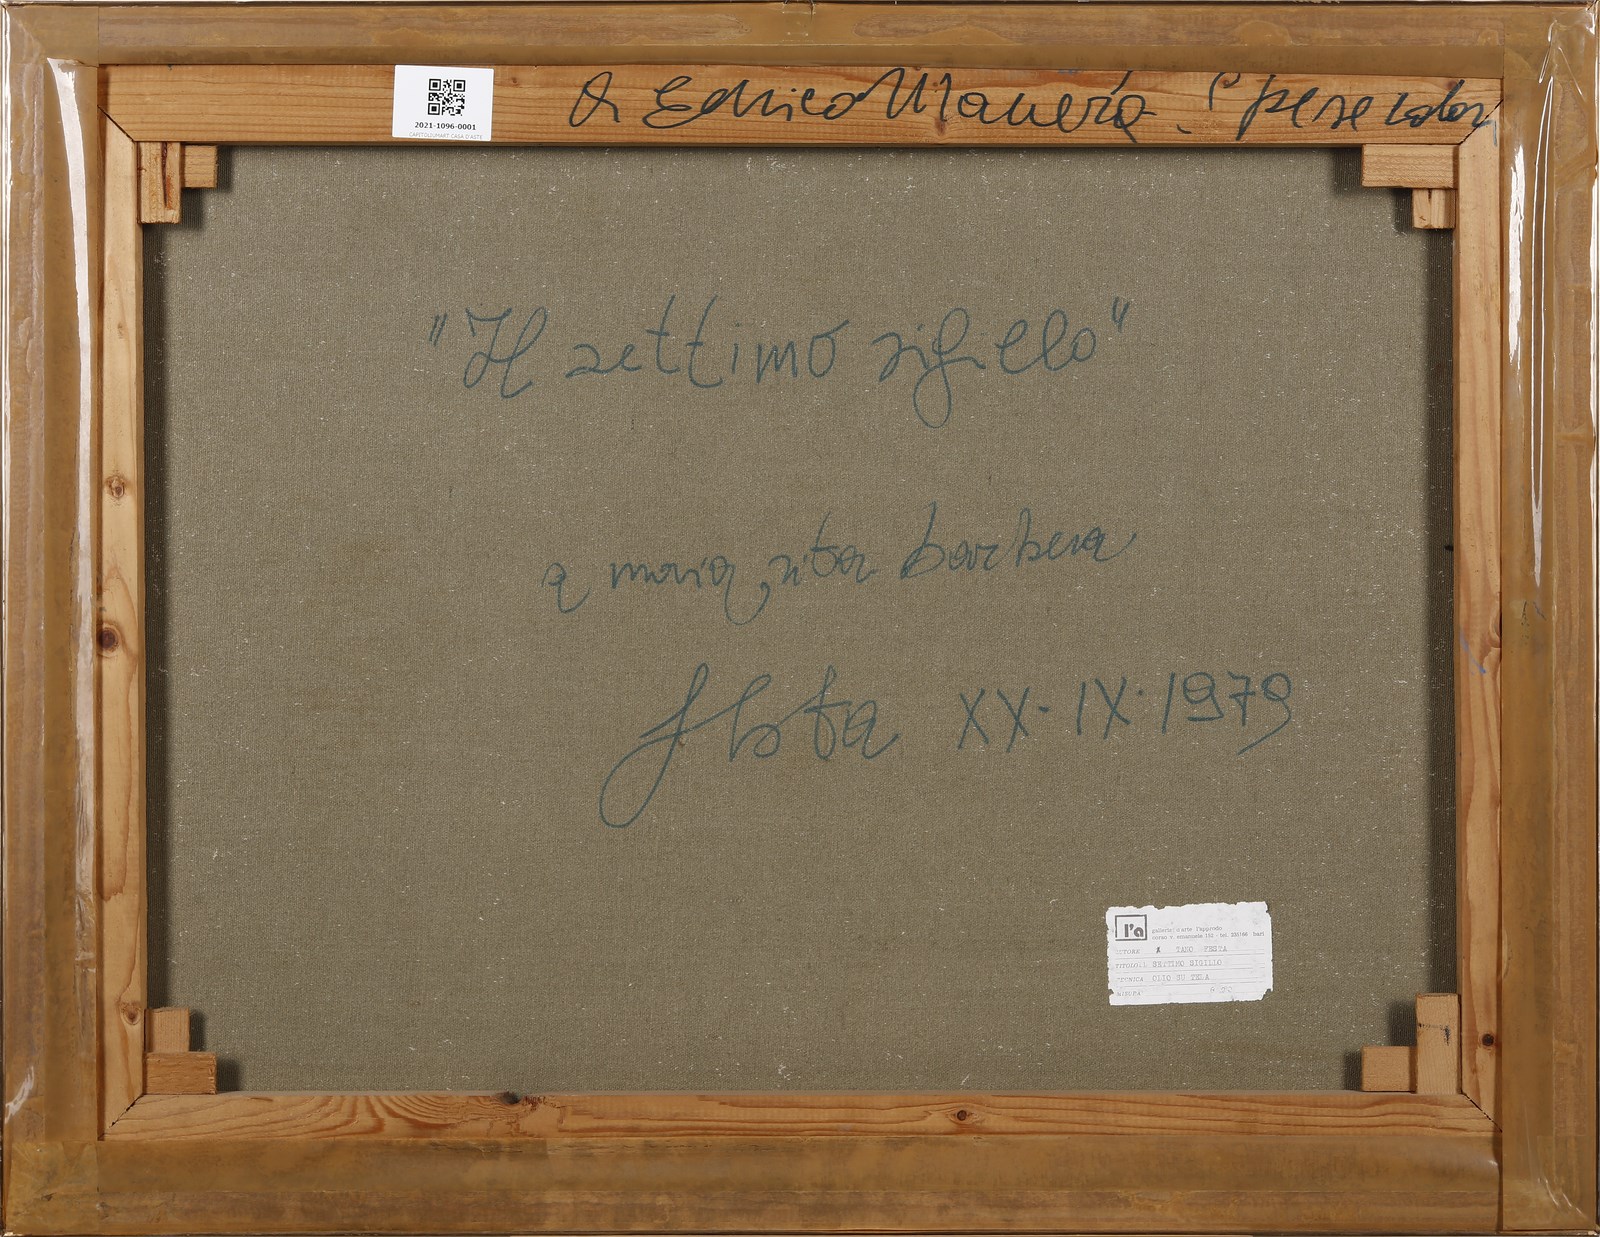 A Enrico Manera
2021-1096-0001
CAPITOLIUMART CASA D'ASTE
"Il settimo sigillo"
a maria rita barbera
festa XX·IX·1979
l'a
galleria d'arte l'approdo
corso v. emanuele 152 - tel. bari
TORE TANO FESTA
TITOLO SETTIMO SIGILLO
TECNICA OLIO SU TELA
MISURA